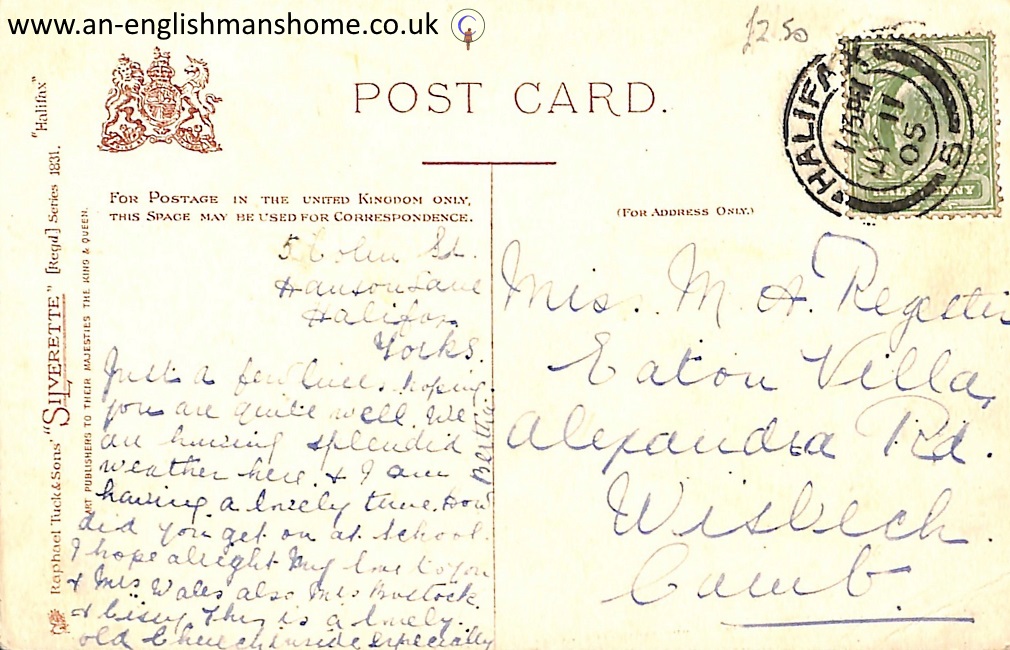 www.an-englishmanshome.co.uk
£2.50
POST CARD.
HALIFAX
JY 11
05
S
HALFPENNY
"Halifax"
Raphael Tuck & Sons' "SILVERETTE" [Regd] Series 1831.
ART PUBLISHERS TO THEIR MAJESTIES THE KING & QUEEN.
FOR POSTAGE IN THE UNITED KINGDOM ONLY,
THIS SPACE MAY BE USED FOR CORRESPONDENCE.
(FOR ADDRESS ONLY.)
5 St.
Hanson Lane
Halifax
Yorks.
Just a few lines hoping
you are quite well. We
are having splendid
weather here. & I am
having a lovely time. How
did you get on at School.
I hope alright My love to you
& Mrs Wales also Mrs Bostock.
& This is a lovely
old Church inside especially
Bertha
Miss. M. A.
Eaton Villa,
Alexandra Rd.
Wisbech.
Camb.